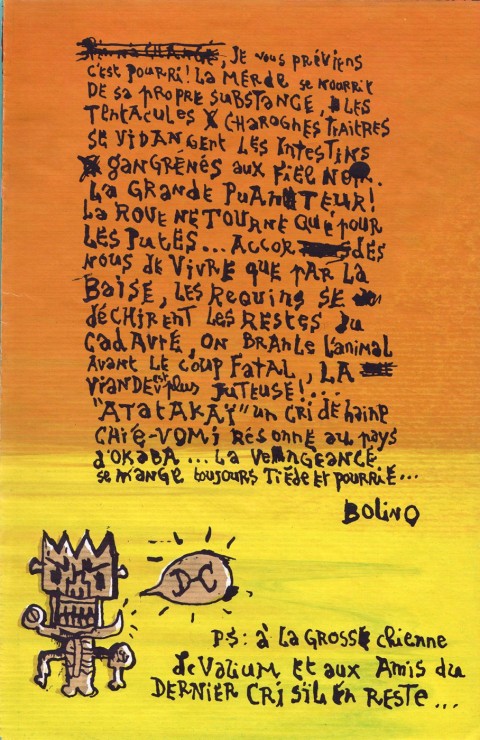 Rien n'a CHANGÉ, JE VOUS PRÉVIENS
C'EST POURRI! LA MERDE SE NOURRIT
DE SA PROPRE SUBSTANCE, LES
TENTACULES CHAROGNES TRAITRES
SE VIDANGENT LES INTESTINS
GANGRÉNÉS AUX FIEL NOIR.
LA GRANDE PUANTEUR!
LA ROUE NE TOURNE QUE POUR
LES PUTES... ACCORDÉS
NOUS DE VIVRE QUE PAR LA
BAISE, LES REQUINS SE
DÉCHIRENT LES RESTES DU
CADAVRE, ON BRANLE L'ANIMAL
AVANT LE COUP FATAL, LA
VIANDE EST PLUS JUTEUSE!...
"ATATAKAÏ" UN CRI DE HAINE
CHIÉ-VOMI RÉSONNE AU PAYS
D'OKABA... LA VENGEANCE
SE MANGE TOUJOURS TIÈDE ET POURRIE...
BOLINO
D-C
PS: À LA GROSSE CHIENNE
DE VALIUM ET AUX AMIS DU
DERNIER CRI S'IL EN RESTE...